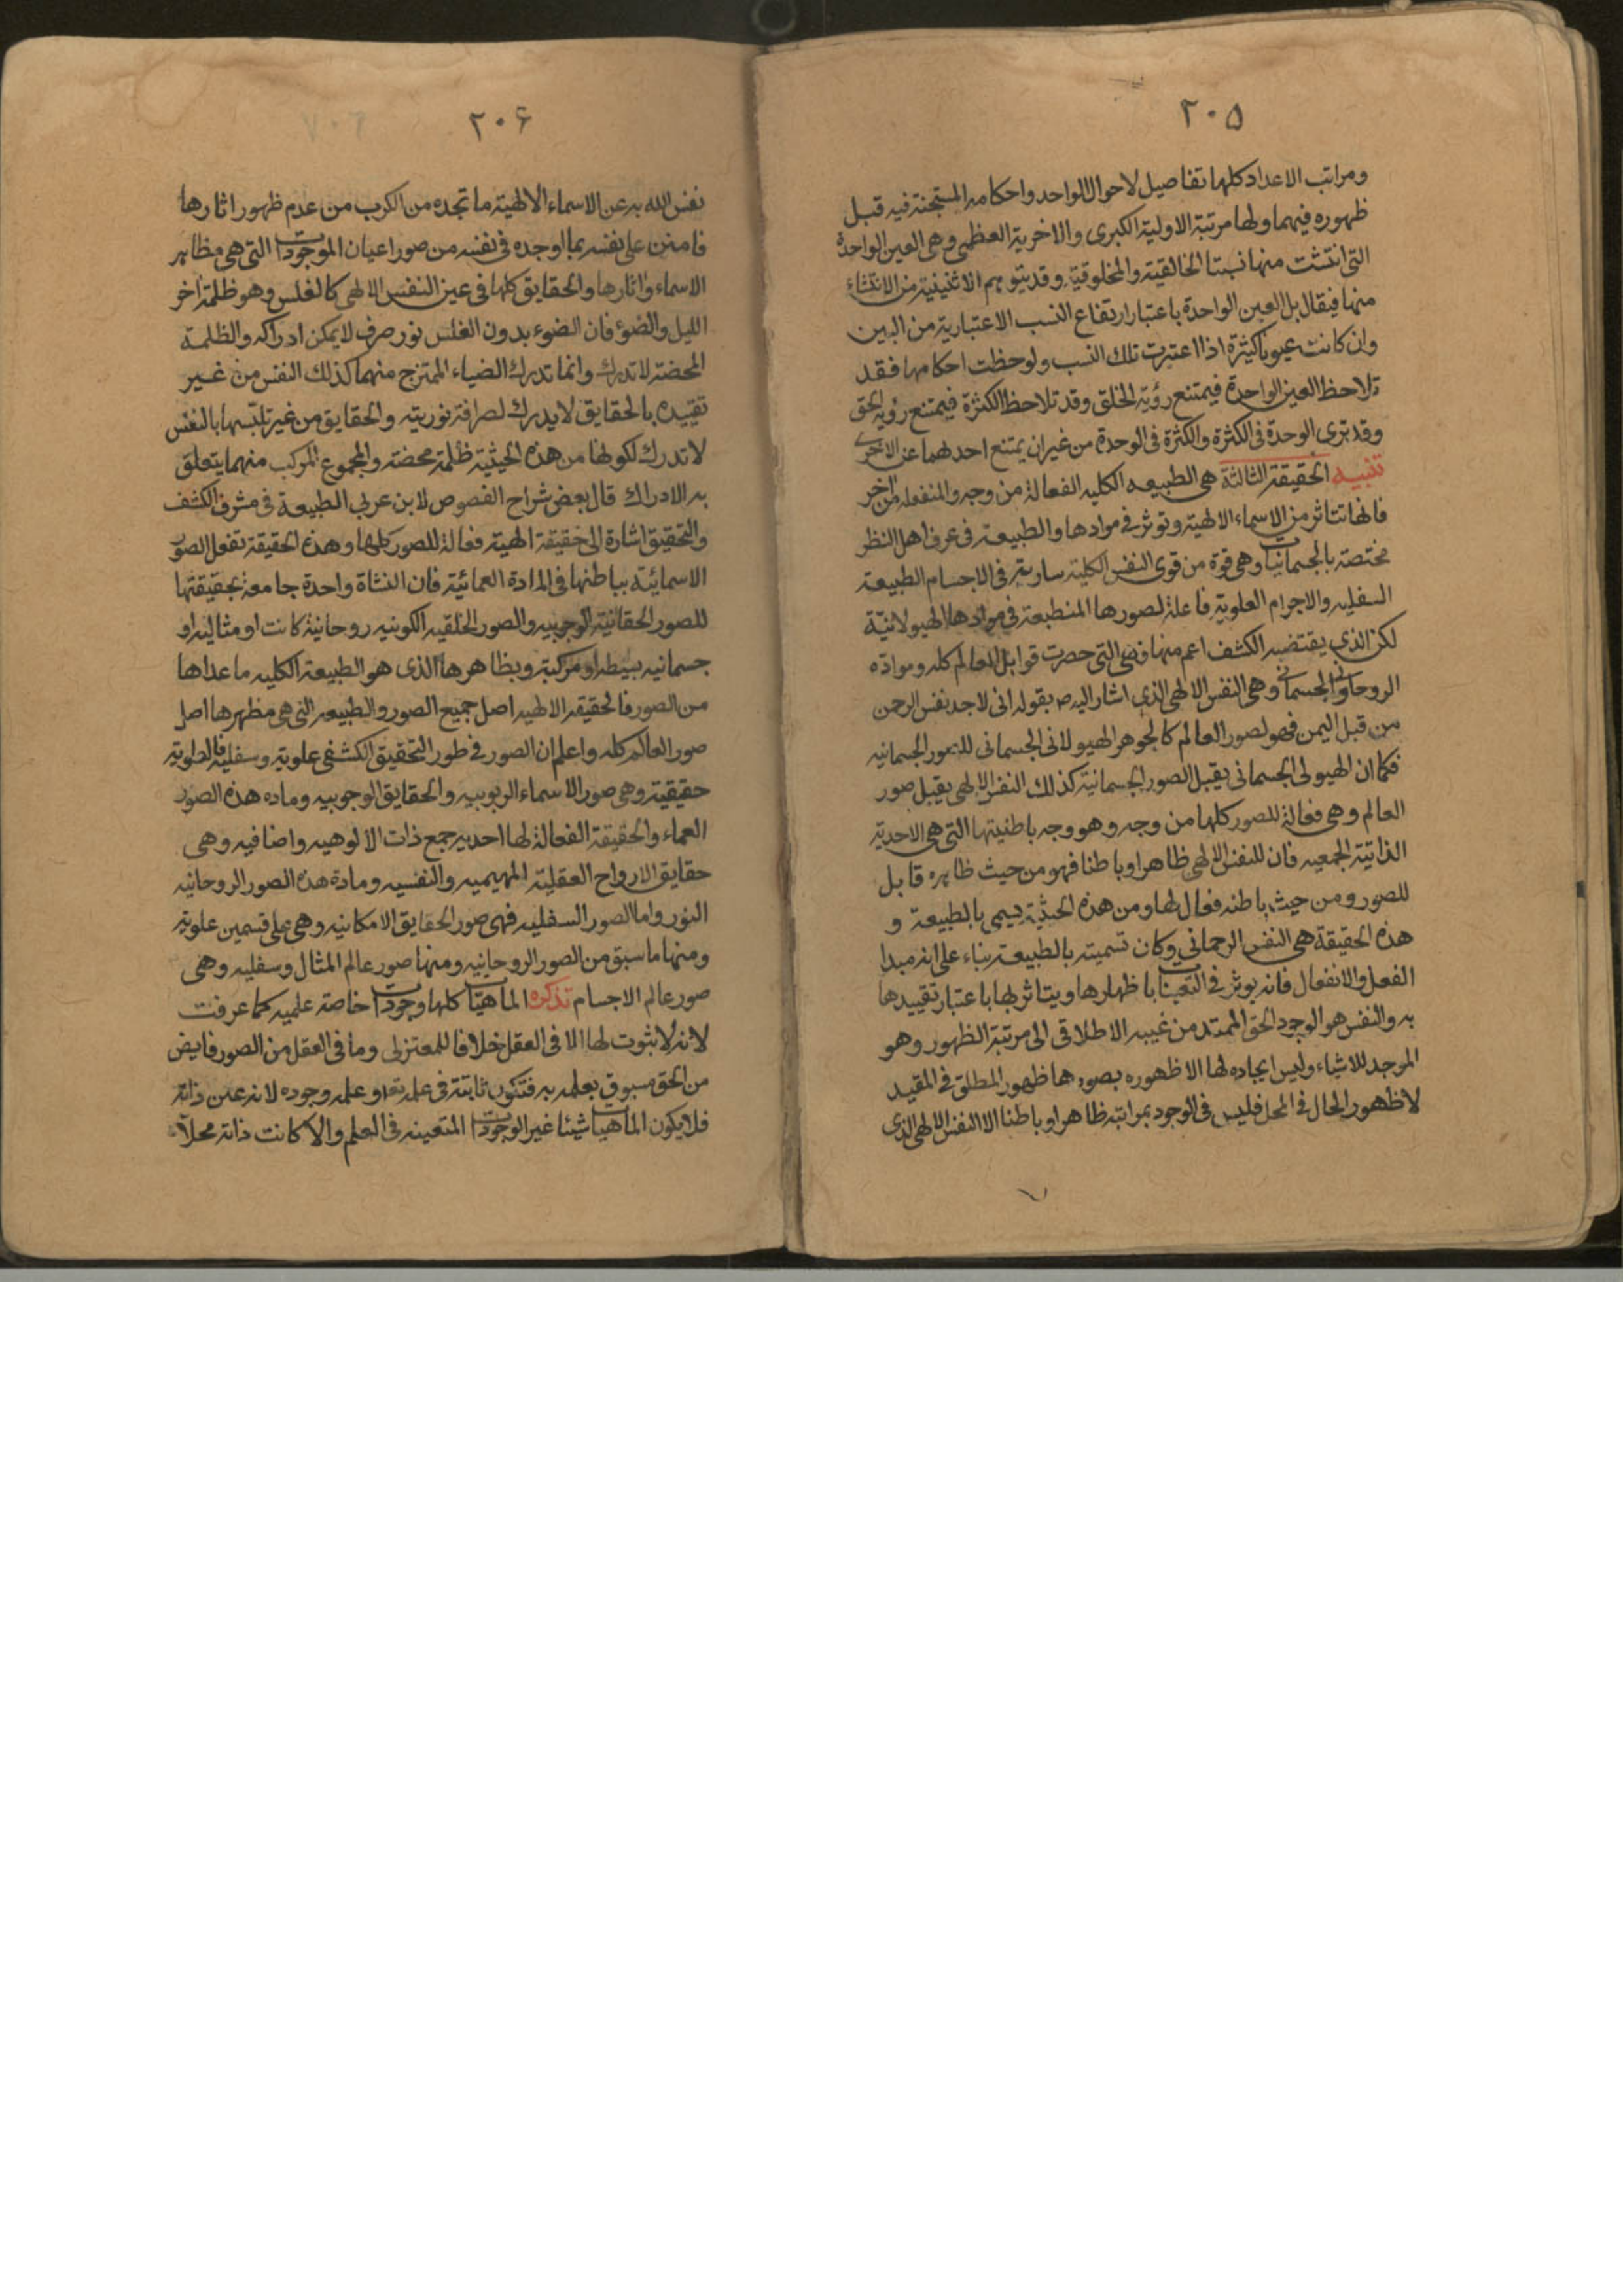 ٢٠۵
ومراتب الاعداد كلها تفاصيل لاحوال الواحد واحكامه المستجنة فيه قبل
ظهوره فيهما ولها مرتبة الاولية الكبرى والاخرية العظمى وهى العين الواحدة
التى انتشئت منها نسبتا الخالقية والمخلوقية وقد يتوهم الاثنينية من الانتشاء
منها فيقال بل العين الواحدة باعتبار ارتفاع النسب الاعتبارية من البين
وان كانت عيونا كثيرة اذا اعتبرت تلك النسب ولوحظت احكامها فقد
تلاحظ العين الواحدة فيمتنع رؤية الخلق وقد تلاحظ الكثرة فيمتنع رؤية الحق
وقد ترى الوحدة فى الكثرة والكثرة فى الوحدة من غير ان يمتنع احدلهما عن الاخرى
تنبيه الحقيقة الثالثة هى الطبيعه الكليه الفعالة من وجه والمنفعله من اخر
فانها تتاثر من الاسماء الالهية وتوثر فى موادها والطبيعة فى عرف اهل النظر
مختصة بالجسمانيات وهى قوة من قوى النفس الكلية سارية فى الاجسام الطبيعة
السفليه والاجرام العلوية فاعلة لصورها المنطبعة فى موادها الهيولانيّة
لكن الذى يقتضيه الكشف اعم منها فهى التى حصرت قوابل العالم كله وموادّه
الروحانى والجسمانى وهى النفس الالهى الذى اشار اليه ص بقوله انى لاجد نفس الرحمن
من قبل اليمن فهو لصور العالم كالجوهر الهيولانى الجسمانى للصور الجسمانيه
فكما ان الهيولى الجسمانى يقبل الصور الجسمانية كذلك النفس الالهى يقبل صور
العالم وهى فعالة للصور كلها من وجه وهو وجه باطنيتها التى هى الاحدية
الذاتية الجمعيه فان للنفس الالهى ظاهرا وباطنا فهو من حيث ظاهره قابل
للصور ومن حيث باطنه فعال لها ومن هذه الحيثية يسمى بالطبيعة و
هذه الحقيقة هى النفس الرحمانى وكان تسميته بالطبيعة بناء على انه مبدا
الفعل والانفعال فانه يوثر فى التعينات باظهارها ويتاثر بها باعتبار تقييدها
به والنفس هو الوجود الحق الممتد من غيبه الاطلاقى الى مرتبة الظهور وهو
الموجد للاشياء وليس ايجاده لها الا ظهوره بصورها ظهور المطلق فى المقيد
لا ظهور الحال فى المحل فليس فى الوجود بمراتبه ظاهرا وباطنا الا النفس الالهى الذى
٢٠۶
نفس الله به عن الاسماء الالهية ما تجده من الكرب من عدم ظهور اثارها
فامتن على نفسه بما اوجده فى نفسه من صور اعيان الموجودات التى هى مظاهر
الاسماء واثارها والحقايق كلها فى عين النفس الالهى كالغلس وهو ظلمة اخر
الليل والضوء فان الضوء بدون الغلس نور صرف لا يمكن ادراكه والظلمة
المحضة لا تدرك وانما تدرك الضياء الممتزج منهما كذلك النفس من غير
تقييده بالحقايق لا يدرك لصرافة نوريته والحقايق من غير تلبّسها بالنفس
لا تدرك لكونها من هذه الحيثية ظلمة محضة والمجموع المركب منهما يتعلق
به الادراك قال بعض شراح الفصوص لابن عربى الطبيعة فى مشرف الكشف
والتحقيق اشارة الى حقيقة الهية فعالة للصور كلها وهذه الحقيقة تفعل الصور
الاسمائية بباطنها فى المادة العمائية فان النشاة واحدة جامعة بحقيقتها
للصور الحقانية الوجوبيه والصور الخلقيه الكونيه روحانية كانت او مثالية او
جسمانيه بسيطه او مركبة وبظاهرها الذى هو الطبيعة الكليه ما عداها
من الصور فالحقيقه الالهيه اصل جميع الصور والطبيعه التى هى مظهرها اصل
صور العالم كله واعلم ان الصور فى طور التحقيق الكشفى علوية وسفلية فالعلوية
حقيقية وهى صور الاسماء الربوبيه والحقايق الوجوبيه وماده هذه الصور
العماء والحقيقة الفعالة لها احديه جمع ذات الالوهيه واضافيه وهى
حقايق الارواح العقلية المهيميه والنفسيه ومادة هذه الصور الروحانيه
النور واما الصور السفليه فهى صور الحقايق الامكانيه وهى على قسمين علوية
ومنها ما سبق من الصور الروحانيه ومنها صور عالم المثال وسفليه وهى
صور عالم الاجسام تذكره الماهيّات كلها وجودات خاصة علميه كما عرفت
لانه لا ثبوت لها الا فى العقل خلافا للمعتزلى وما فى العقل من الصور فايض
من الحق مسبوق بعلمه به فتكون ثابتة فى علمه تعه و علمه وجوده لانه عين ذاته
فلا يكون الماهيات شيئا غير الوجودات المتعينه فى العلم والا كانت ذاته محلا